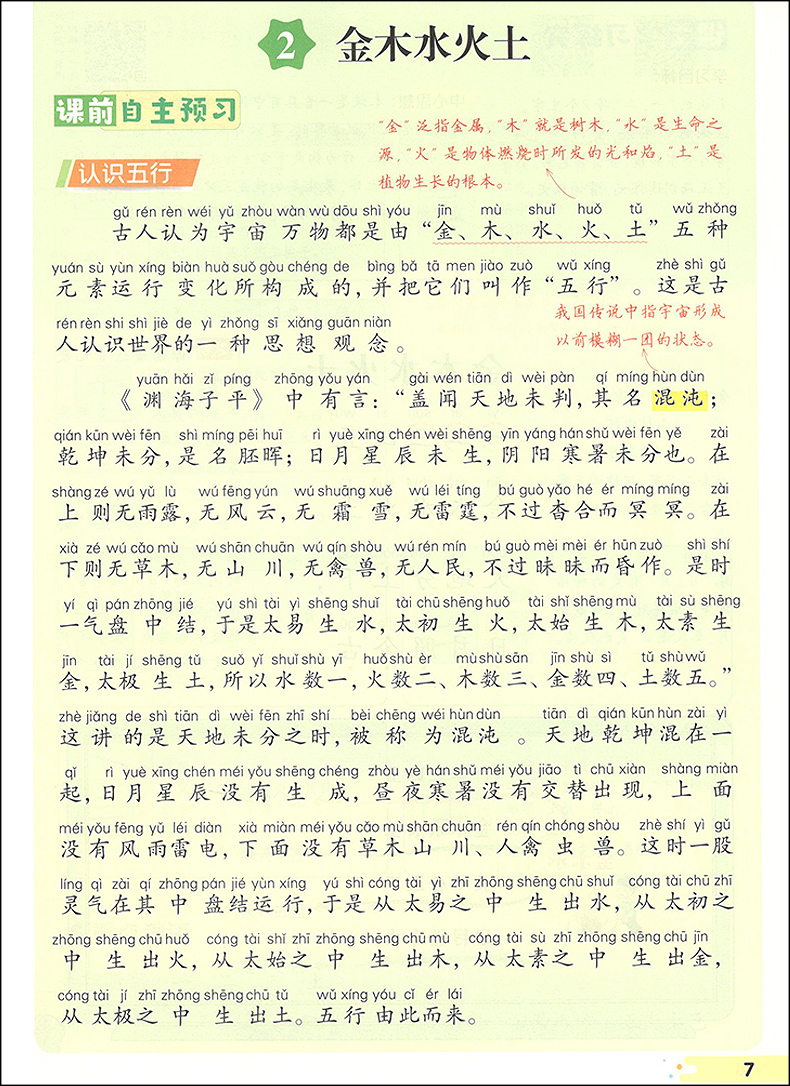 2 金木水火土
课前自主预习
“金”泛指金属，“木”就是树木，“水”是生命之
源，“火”是物体燃烧时所发的光和焰，“土”是
植物生长的根本。
认识五行
gǔ rén rèn wéi yǔ zhòu wàn wù dōu shì yóu jīn mù shuǐ huǒ tǔ wǔ zhǒng
古人认为宇宙万物都是由“金、木、水、火、土”五种
yuán sù yùn xíng biàn huà suǒ gòu chéng de bìng bǎ tā men jiào zuò wǔ xíng zhè shì gǔ
元素运行变化所构成的，并把它们叫作“五行”。这是古
我国传说中指宇宙形成
以前模糊一团的状态。
rén rèn shi shì jiè de yì zhǒng sī xiǎng guān niàn
人认识世界的一种思想观念。
yuān hǎi zǐ píng zhōng yǒu yán gài wén tiān dì wèi pàn qí míng hùn dùn
《渊海子平》中有言：“盖闻天地未判，其名混沌；
qián kūn wèi fēn shì míng pēi huī rì yuè xīng chén wèi shēng yīn yáng hán shǔ wèi fēn yě zài
乾坤未分，是名胚晖；日月星辰未生，阴阳寒暑未分也。在
shàng zé wú yǔ lù wú fēng yún wú shuāng xuě wú léi tíng bú guò yǎo hé ér míng míng zài
上则无雨露，无风云，无霜雪，无雷霆，不过杳合而冥冥。在
xià zé wú cǎo mù wú shān chuān wú qín shòu wú rén mín bú guò mèi mèi ér hūn zuò shì shí
下则无草木，无山川，无禽兽，无人民，不过昧昧而昏作。是时
yí qì pán zhōng jié yú shì tài yì shēng shuǐ tài chū shēng huǒ tài shǐ shēng mù tài sù shēng
一气盘中结，于是太易生水，太初生火，太始生木，太素生
jīn tài jí shēng tǔ suǒ yǐ shuǐ shù yī huǒ shù èr mù shù sān jīn shù sì tǔ shù wǔ
金，太极生土，所以水数一，火数二、木数三、金数四、土数五。”
zhè jiǎng de shì tiān dì wèi fēn zhī shí bèi chēng wéi hùn dùn tiān dì qián kūn hùn zài yì
这讲的是天地未分之时，被称为混沌。天地乾坤混在一
qǐ rì yuè xīng chén méi yǒu shēng chéng zhòu yè hán shǔ méi yǒu jiāo tì chū xiàn shàng miàn
起，日月星辰没有生成，昼夜寒暑没有交替出现，上面
méi yǒu fēng yǔ léi diàn xià miàn méi yǒu cǎo mù shān chuān rén qín chóng shòu zhè shí yì gǔ
没有风雨雷电，下面没有草木山川、人禽虫兽。这时一股
líng qì zài qí zhōng pán jié yùn xíng yú shì cóng tài yì zhī zhōng shēng chū shuǐ cóng tài chū zhī
灵气在其中盘结运行，于是从太易之中生出水，从太初之
zhōng shēng chū huǒ cóng tài shǐ zhī zhōng shēng chū mù cóng tài sù zhī zhōng shēng chū jīn
中生出火，从太始之中生出木，从太素之中生出金，
cóng tài jí zhī zhōng shēng chū tǔ wǔ xíng yóu cǐ ér lái
从太极之中生出土。五行由此而来。
7